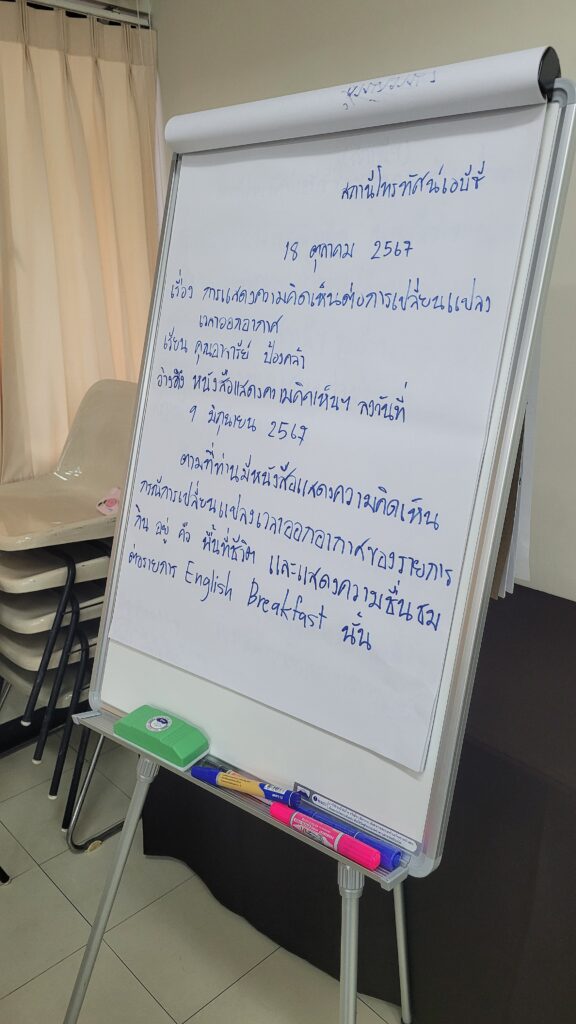 สถานีโทรทัศน์เอบีซี
18 ตุลาคม 2567
เรื่อง การแสดงความคิดเห็นต่อการเปลี่ยนแปลง
เวลาออกอากาศ
เรียน คุณอาจารีย์ ป้องคล้า
อ้างถึง หนังสือแสดงความคิดเห็นฯ ลงวันที่
9 มิถุนายน 2567
ตามที่ท่านมีหนังสือแสดงความคิดเห็น
กรณีการเปลี่ยนแปลงเวลาออกอากาศของรายการ
กิน อยู่ คือ พื้นที่ชีวิต และแสดงความชื่นชม
ต่อรายการ English Breakfast นั้น